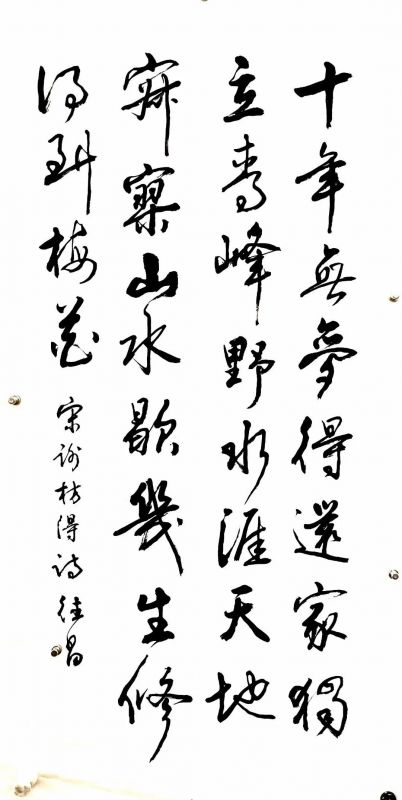 十年無夢得還家獨
立青峰野水涯天地
寂寥山水歇幾生修
得到梅花 宋謝枋得詩 昌